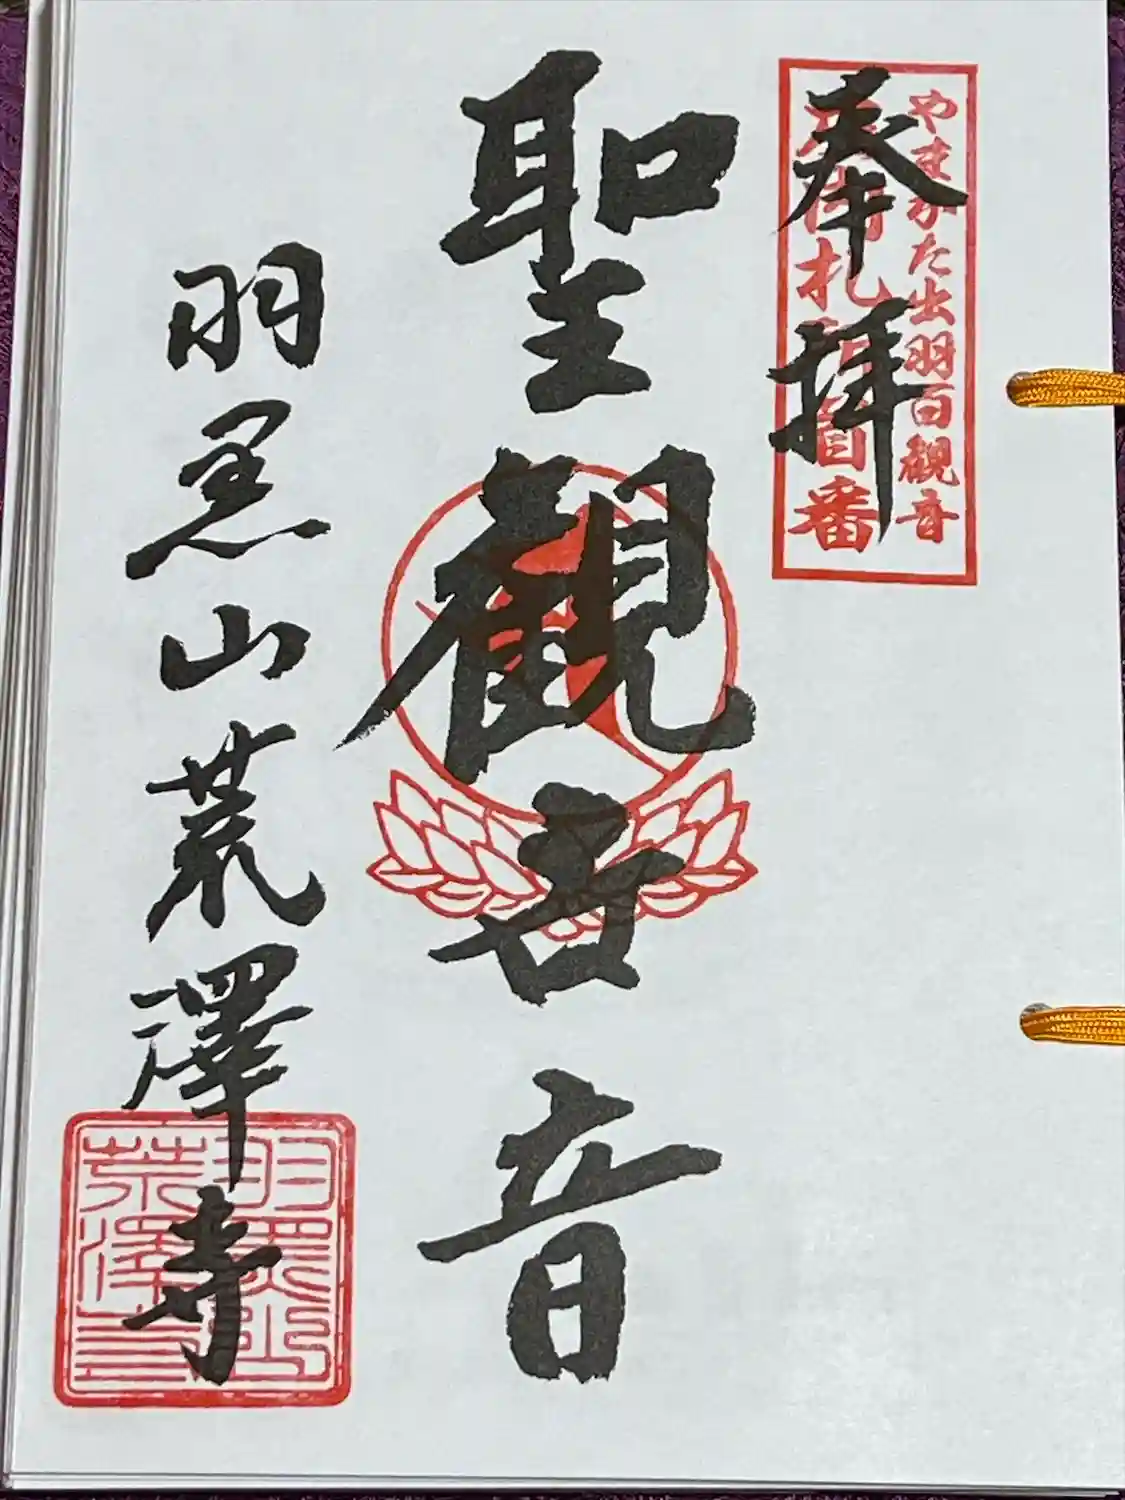 やまがた出羽百観音
札所首番
奉拝
聖観世音
羽黒山荒澤寺
羽黒山
荒澤寺